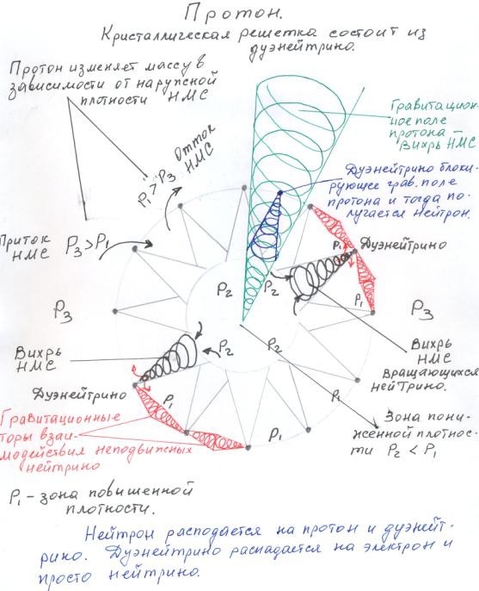 Протон.
Кристаллическая решетка состоит из
дуэнейтрино.
Протон изменяет массу в
зависимости от наружной
плотности НМС
P₁ > P₃
Отток
НМС
Гравитацион-
ное поле
протона –
Вихрь НМС
Дуэнейтрино блоки-
рующее грав. поле
протона и тогда по-
лучается Нейтрон.
Приток P₃ > P₁
НМС
P₁
Дуэнейтрино
P₂
P₂
P₁
P₃
P₃
Вихрь
НМС
P₂
P₂
Вихрь
НМС
вращающихся
нейтрино.
Дуэнейтрино
P₁
P₁
Гравитационные
торы взаи-
модействия неподвижных
нейтрино
P₁
Зона пони-
женной плотнос-
ти P₂ < P₁
P₁ – зона повышенной
плотности.
Нейтрон расподается на протон и дуэнейт-
рино. Дуэнейтрино распадается на электрон и
просто нейтрино.